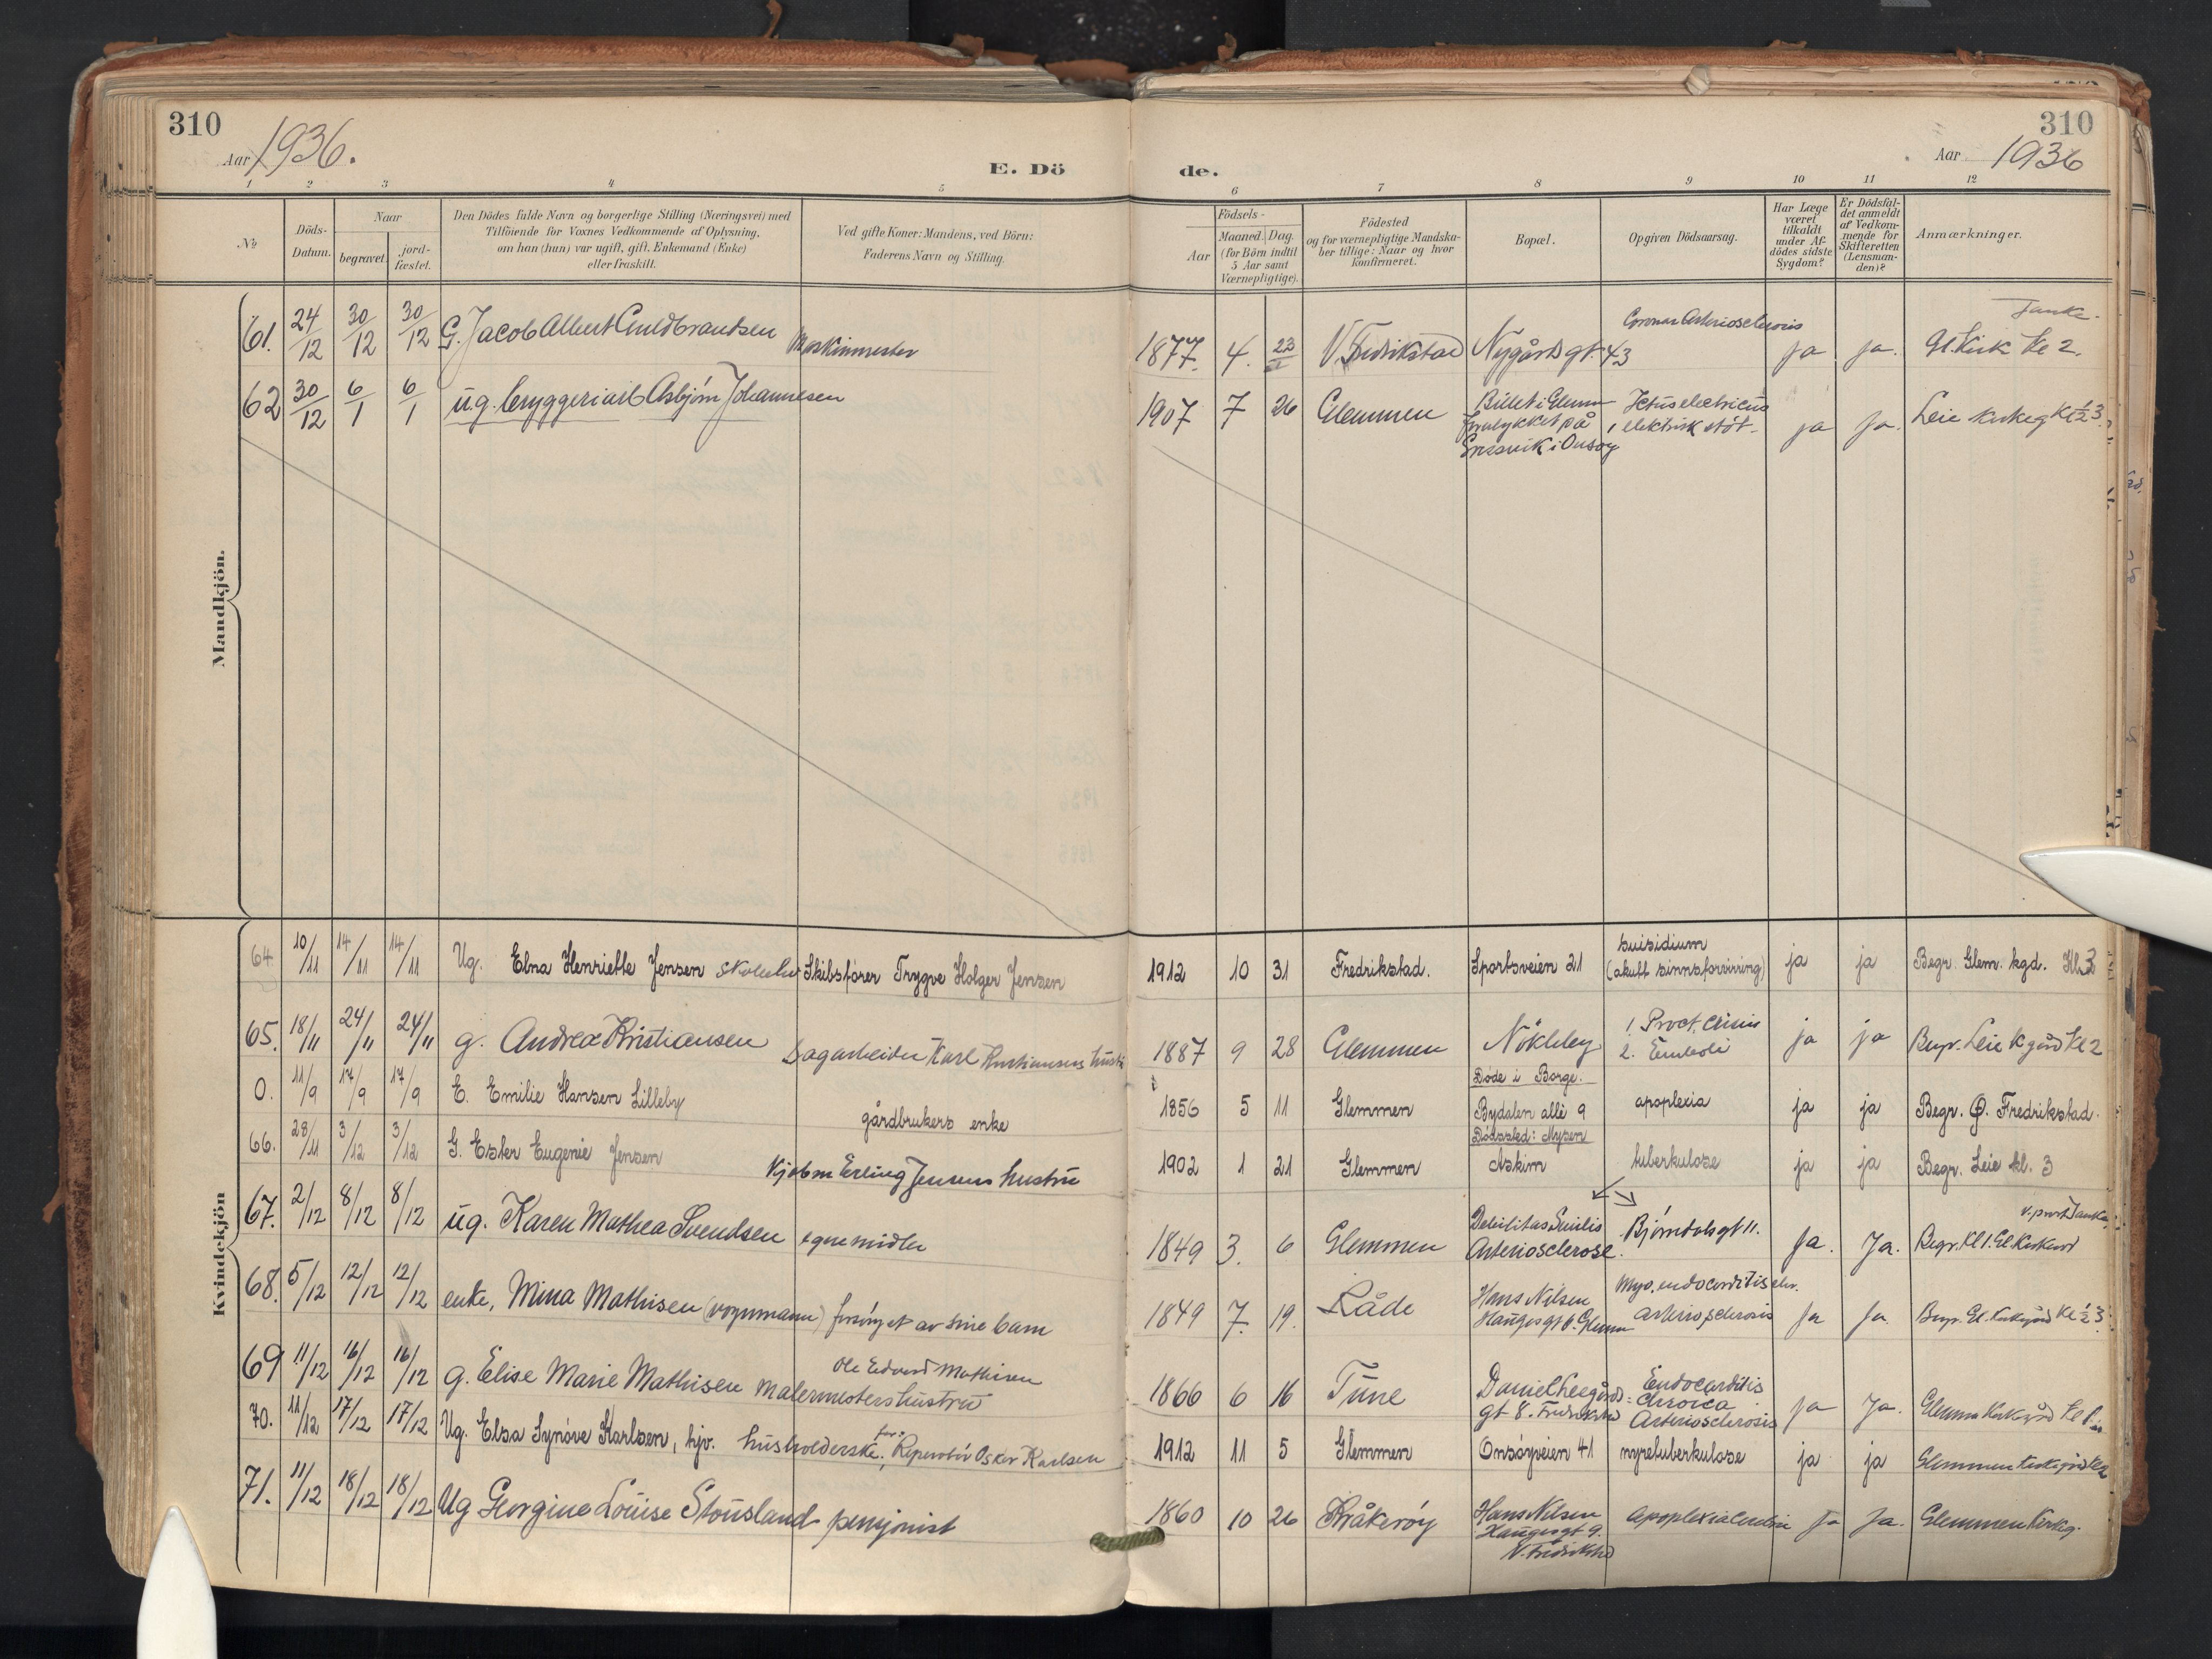 310
Aar 1936.
E. Dö
de.
310
Aar 1936
1 2 3 4 5 6 7 8 9 10 11 12
No
Döds-Datum.
Naar
begravet.
jord-fæstet.
Den Dödes fulde Navn og borgerlige Stilling (Næringsvei) med
Tilföiende for Voxnes Vedkommende af Oplysning,
om han (hun) var ugift, gift, Enkemand (Enke)
eller fraskilt.
Ved gifte Koner: Mandens, ved Börn:
Faderens Navn og Stilling.
Födsels-
Aar
Maaned. Dag.
(for Börn indtil
5 Aar samt
Værnepligtige).
Födested
og for værnepligtige Mandska-
ber tillige: Naar og hvor
konfirmeret.
Bopæl.
Opgiven Dödsaarsag.
Har Læge
været
tilkaldt
under Af-
dödes sidste
Sygdom?
Er Dödsfal-
det anmeldt
af Vedkom-
mende for
Skifteretten
(Lensman-
den)?
Anmærkninger.
Mandkjön.
61. 24/12 30/12 30/12 G. Jacob Albert Guldbrandsen Maskinmester 1877. 4. 23 V. Fredrikstad Nygårds gt. 43 Coronar Arteriosclerosis ja ja. Gl. Kirk kl 2.
62 30/12 6/1 6/1 u.g. bryggeriarb Asbjörn Johannesen 1907 7 26 Glemmen Billet i Glemm
forulykket på
i Onsøy Ictus electricus
elektrisk stöt ja ja. Leie kirkeg kl 1/2 3.
Kvindekjön
64. 10/11 14/11 14/11 Ug. Elna Henriette Jensen Skibsfører Trygve Holger Jensen 1912 10 31 Fredrikstad. Sportsveien 21 suisidium
(akutt sinnsforvirring) ja ja Begr. Glem. kgd. Kl. 3
65. 18/11 24/11 24/11 g. Andrea Kristiansen Sagarbeider Karl Kristiansens hustr 1887 9 28 Glemmen Nökleby 1.
2. Emboli ja ja Begr. Leie K gård kl 2
0. 11/9 17/9 17/9 E. Emilie Hansen Lilleby gårdbrukers enke 1856 5 11 Glemmen Döde i Borge.
Bydalen allè 9 apoplexia ja ja Begr. Ö. Fredrikstad.
66. 28/11 3/12 3/12 G. Ester Eugenie Jensen Kjøbm Erling Jensens hustru 1902 1 21 Glemmen Dödssted: Mysen
Askim tuberkulose ja ja Begr. Leie kl. 3
67. 2/12 8/12 8/12 ug. Karen Mathea Svendsen egne midler 1849 3. 6 Glemmen Debilitas Senilis
Arteriosclerose. Bjørndalsgt 11. Ja. Ja. Begr. Kl 1. Gl. Kirkeg
68. 5/12 12/12 12/12 enke, Mina Mathisen (vognmann) forsörget av sine barn 1849 7. 19. Råde Hans Nilsen
Hauges gt 6. Glemm Myo. endocarditis chr.
arteriosclerosis Ja Ja. Begr. Gl. Kirkegård kl 1/2 3
69 11/12 16/12 16/12 g. Elise Marie Mathisen Ole Edvard Mathisen
malermesters hustru 1866 6 16 Tune Daniel Leegårds
gt 8. Fredrikstad Endocarditis
Chronica
Arteriosclerosis ja Ja. Glemmen Kirkegård Kl 1.
70. 11/12 17/12 17/12 Ug. Elsa Synöve Karlsen, hjv. husholderske. far: Reperatör Oskar Karlsen 1912 11 5 Glemmen Onsöyveien 41 nyretuberkulose ja ja Glemmen kirkegård kl 2
71. 11/12 18/12 18/12 Ug Georgine Louise Stousland pensjonist 1860 10 26 Kråkeröy Hans Nilsen
Hauges gt 9.
V. Fredrikstad Apoplexia Cerebri Ja Ja. Glemmen Kirkeg.